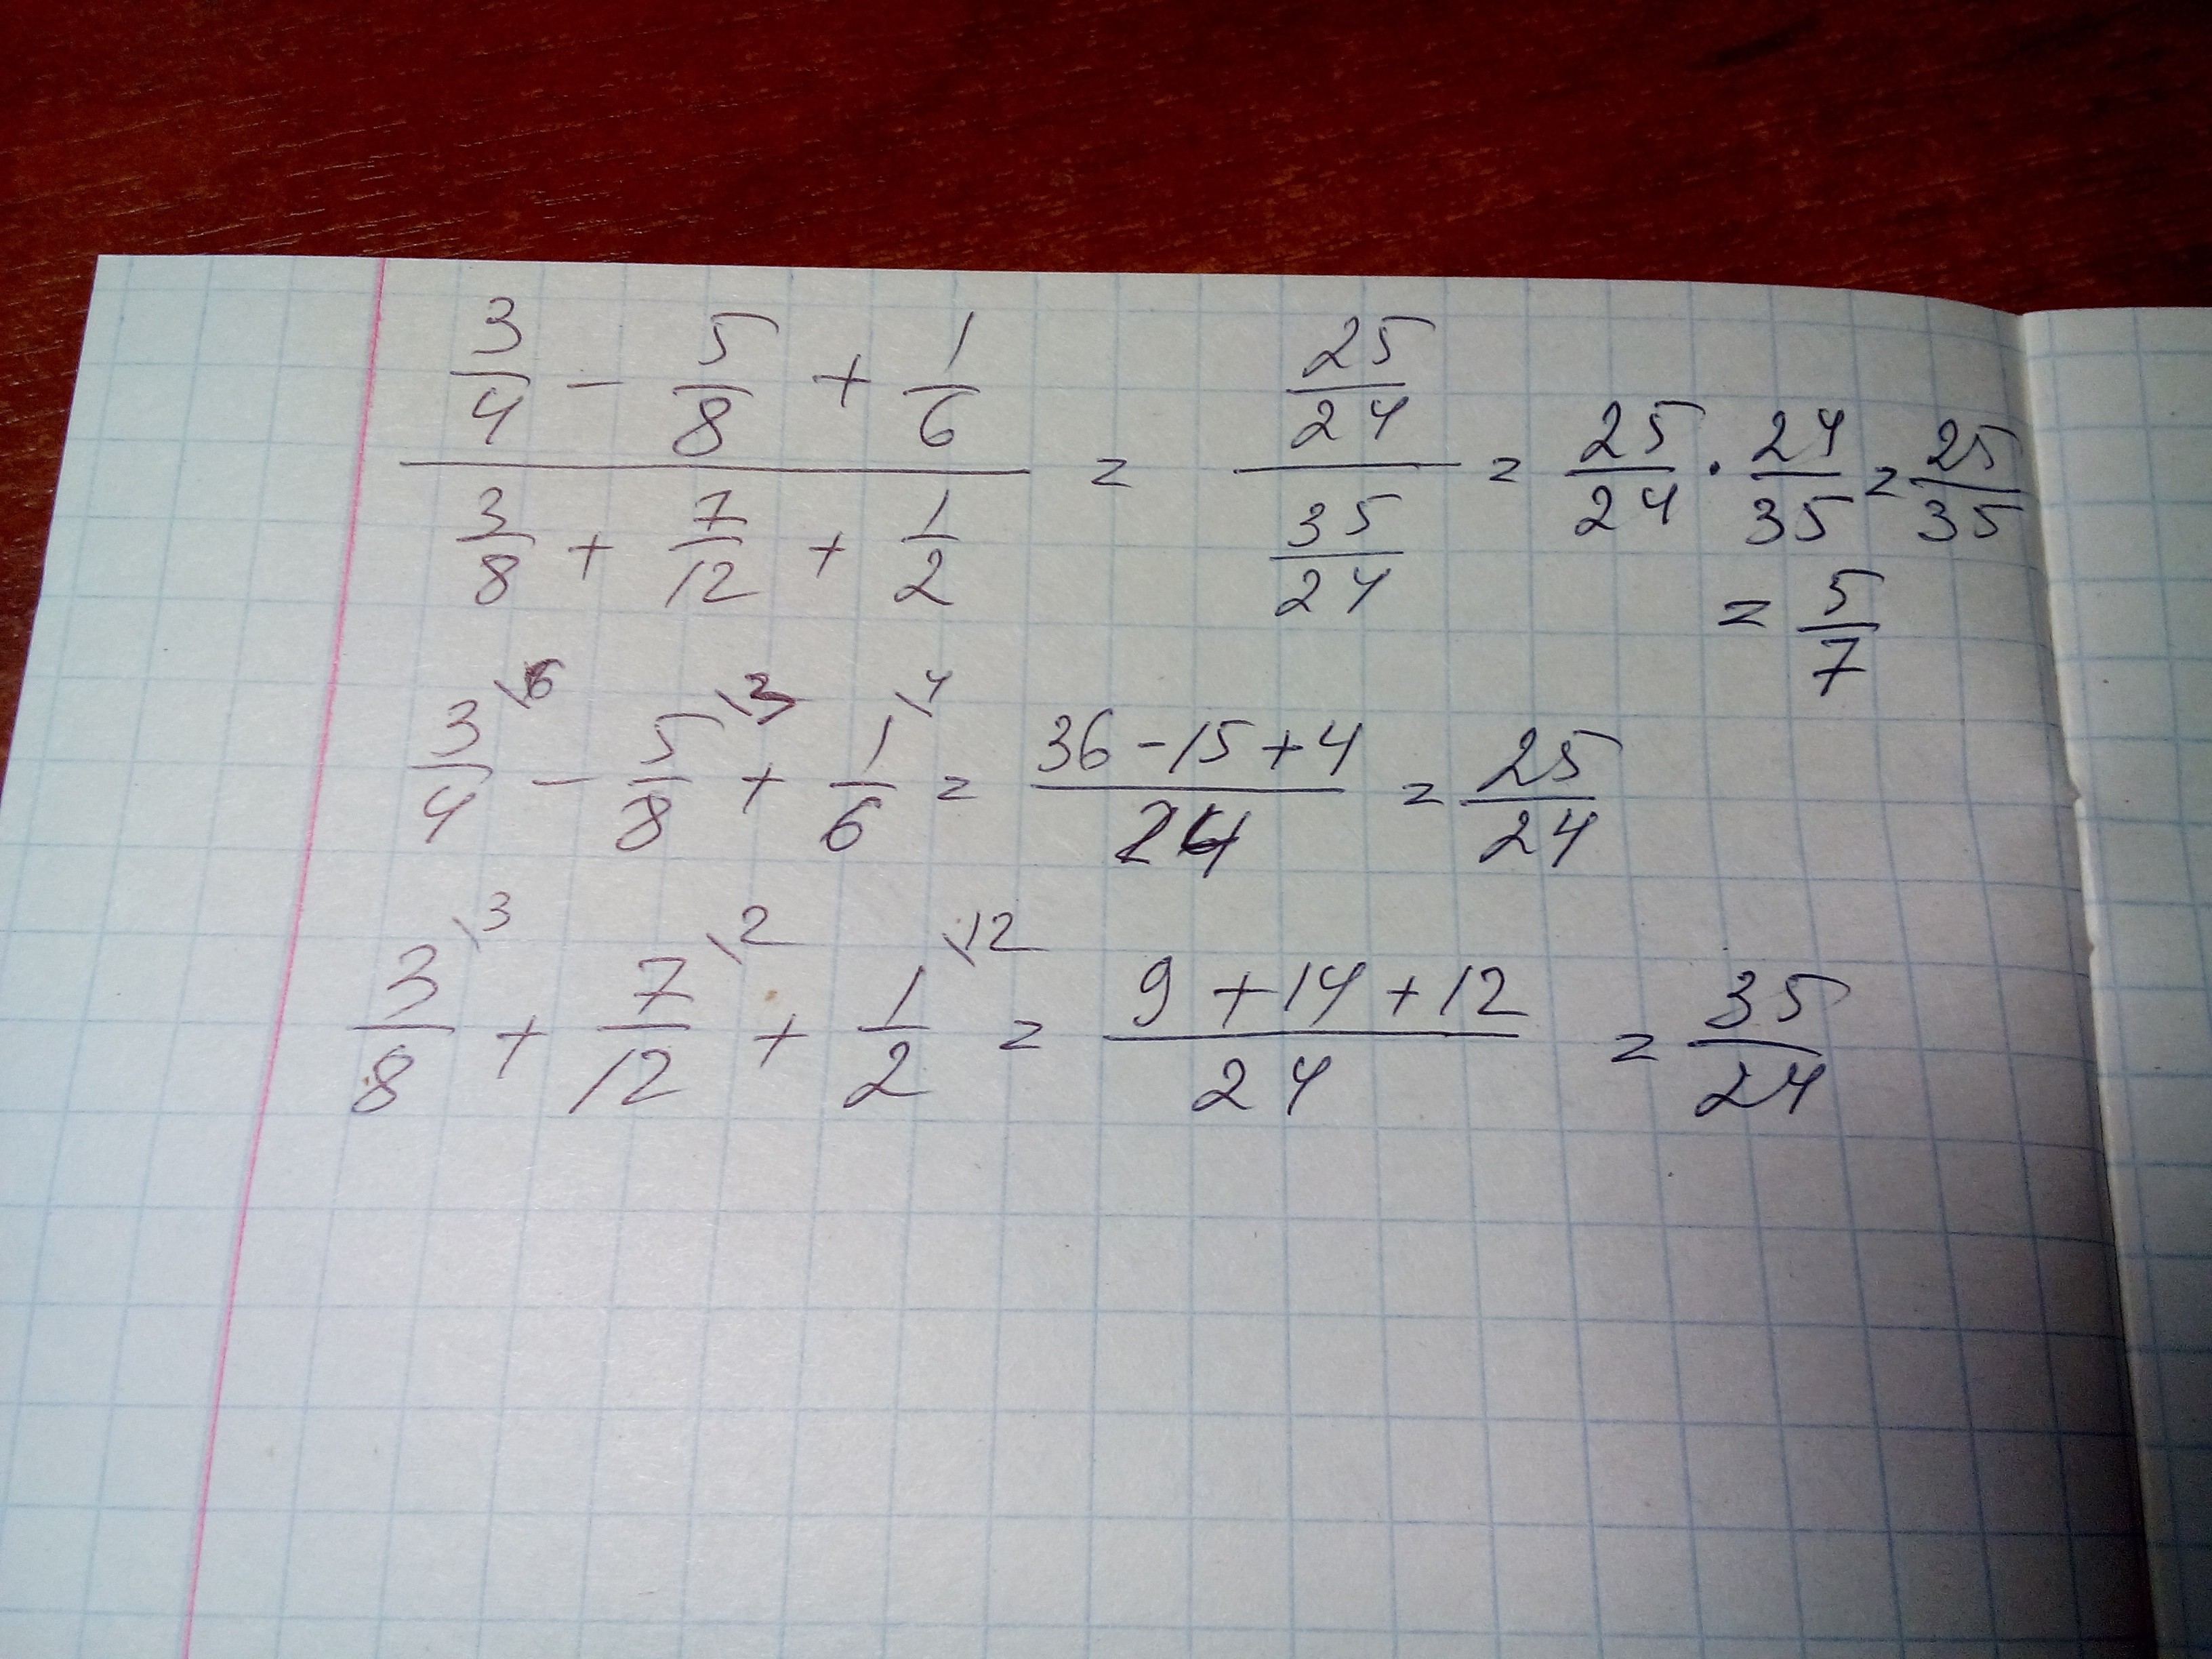 3/4 - 5/8 + 1/6 / 3/8 + 7/12 + 1/2 = 25/24 / 35/24 = 25/24 · 24/35 = 25/35
= 5/7
3/4 \6 - 5/8 \3 + 1/6 \4 = 36 - 15 + 4 / 24 = 25/24
3/8 \3 + 7/12 \2 + 1/2 \12 = 9 + 14 + 12 / 24 = 35/24